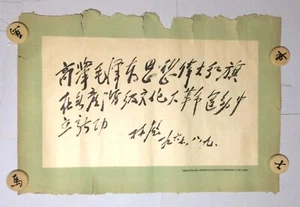 高舉毛泽东思想伟大红旗
在无产阶级文化大革命运动中
立新功
林彪
八.九.
馬
士